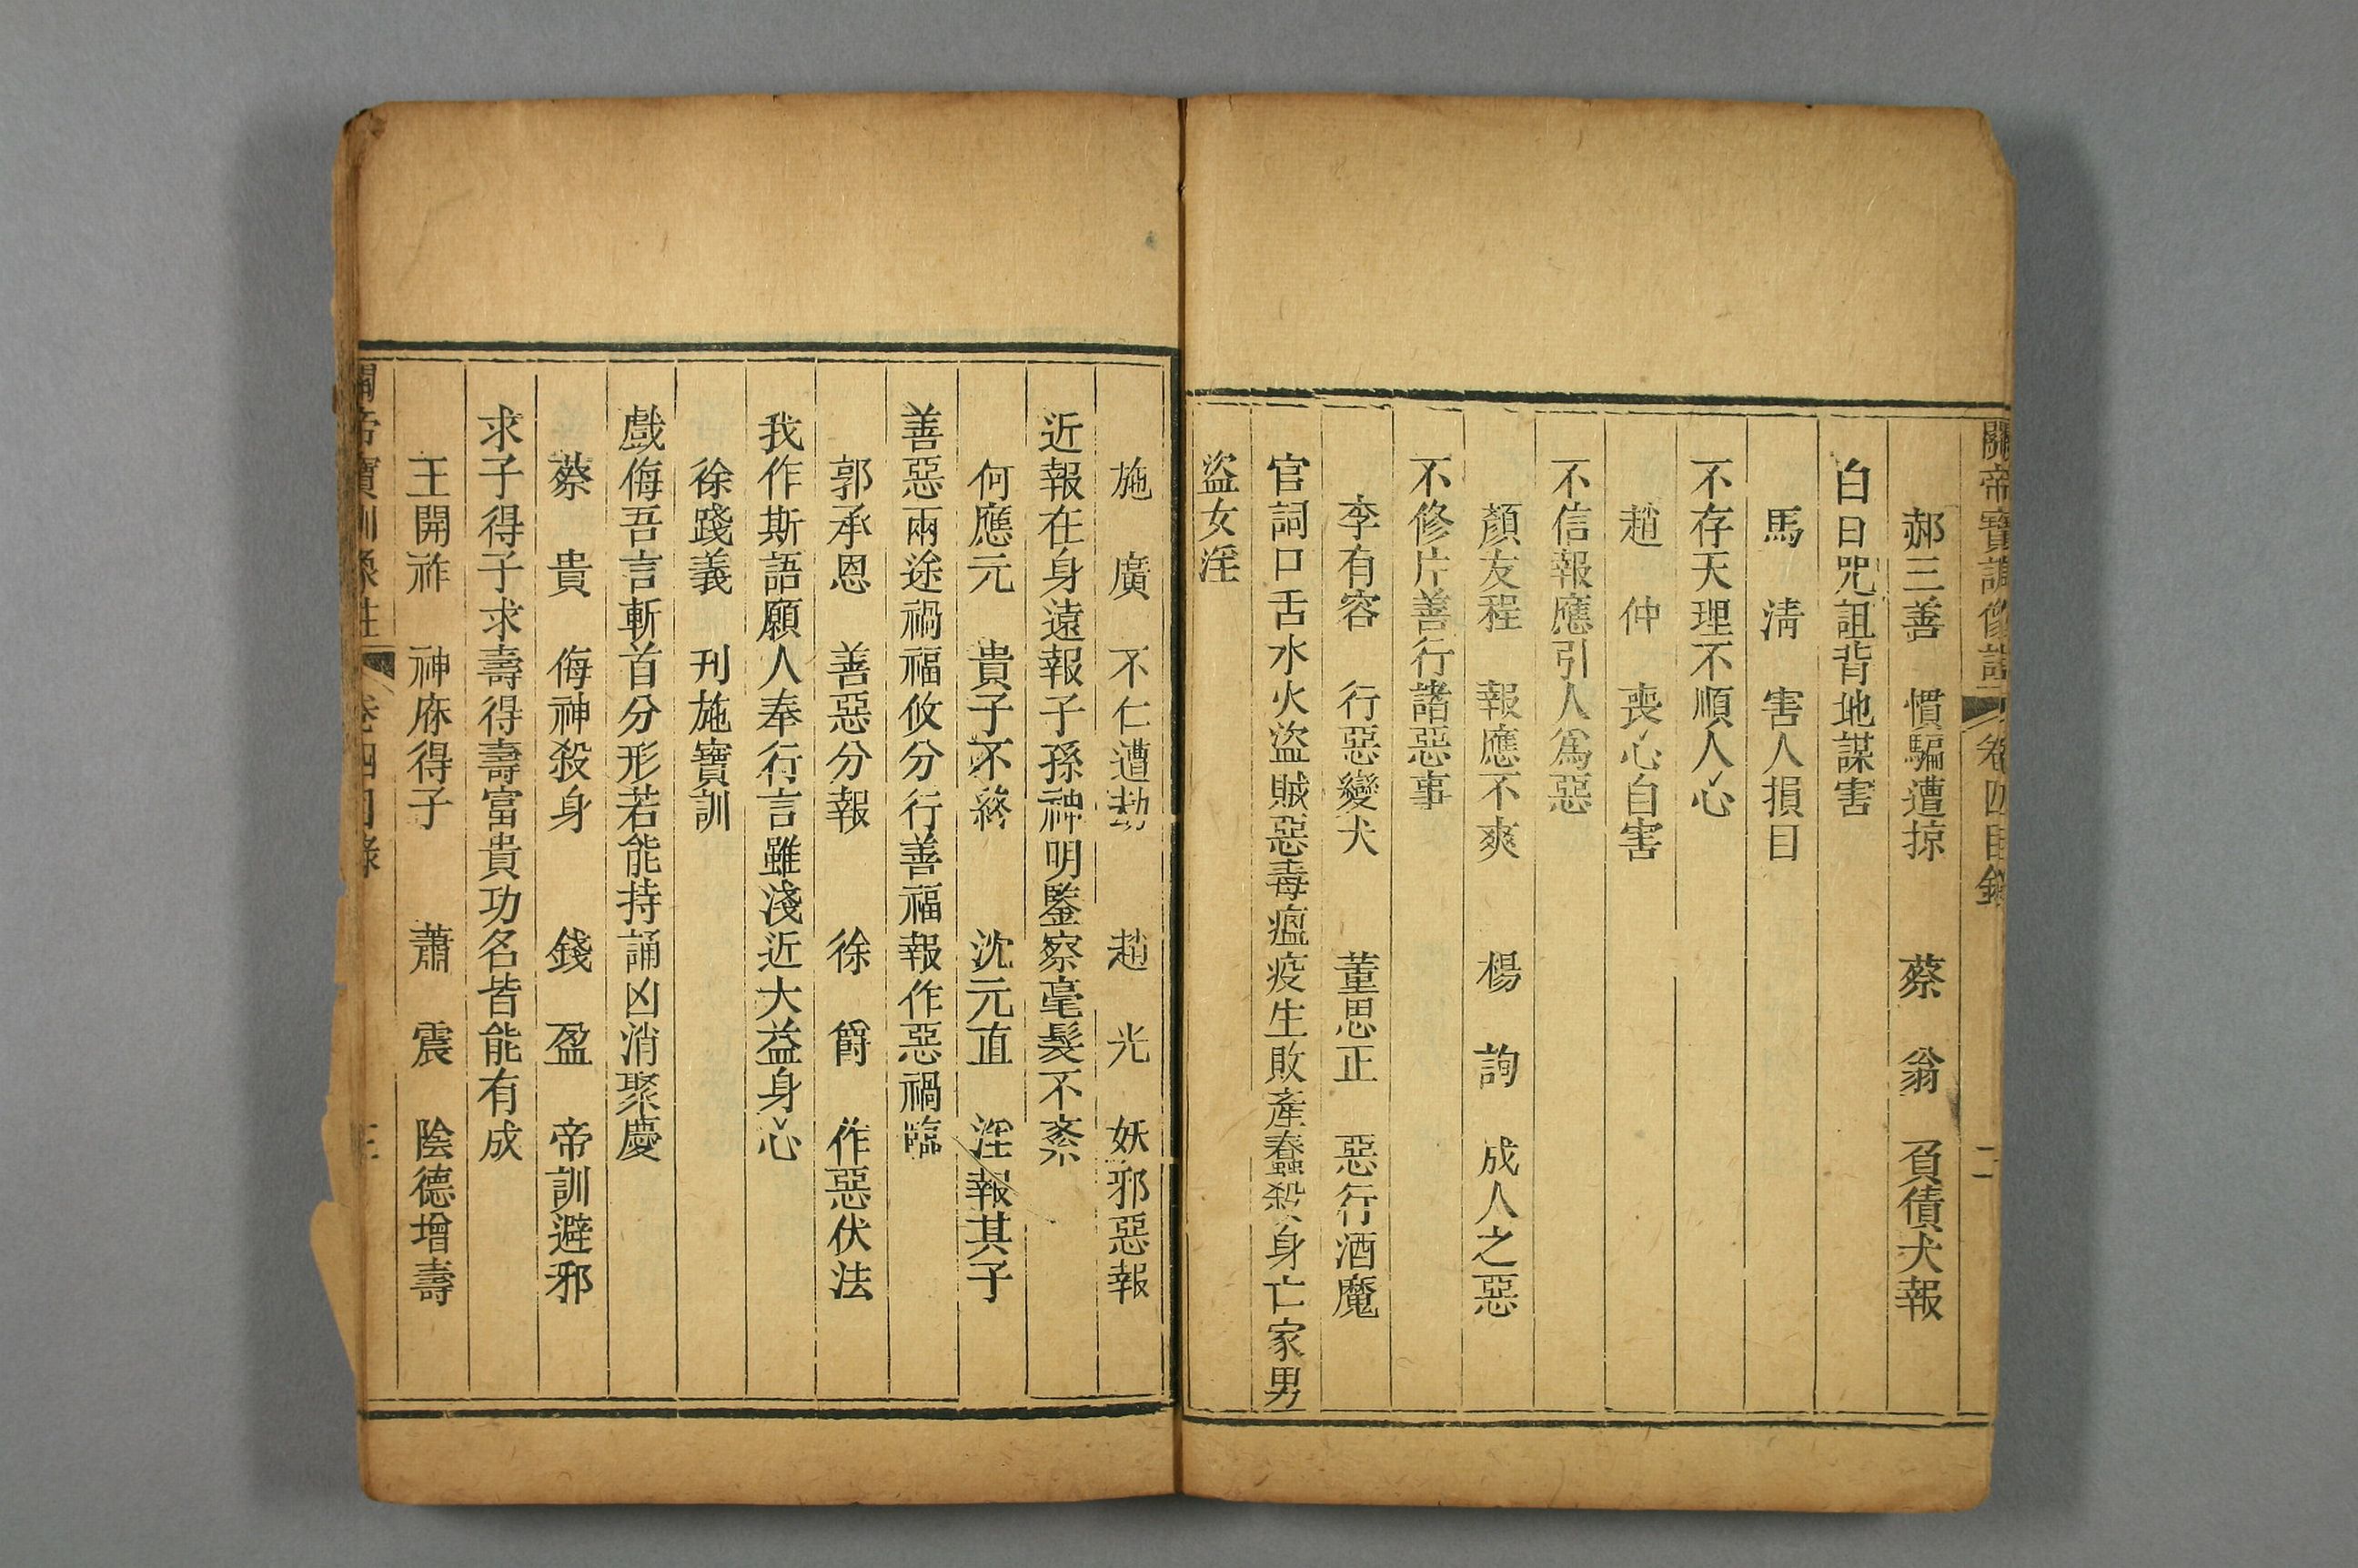 關帝寶訓像註 卷四目錄 二
郝三善 慣騙遭掠 蔡 翁 負債犬報
白日咒詛背地謀害
馬 淸 害人損目
不存天理不順人心
趙 仲 喪心自害
不信報應引人為惡
顏友程 報應不爽 楊 詢 成人之惡
不修片善行諸惡事
李有容 行惡變犬 董思正 惡行酒魔
官詞口舌水火盜賊惡毒瘟疫生敗產蠢殺身亡家男
盜女淫
施 廣 不仁遭劫 趙 光 妖邪惡報
近報在身遠報子孫神明鑒察毫髮不紊
何應元 貴子不終 沈元直 淫報其子
善惡兩途禍福攸分行善福報作惡禍臨
郭承恩 善惡分報 徐 爵 作惡伏法
我作斯語願人奉行言雖淺近大益身心
徐踐義 刊施寶訓
戲侮吾言斬首分形若能持誦凶消聚慶
蔡 貴 侮神殺身 錢 盈 帝訓避邪
求子得子求壽得壽富貴功名皆能有成
王開祚 神庥得子 蕭 震 陰德增壽
關帝寶訓像註 卷四目錄 三